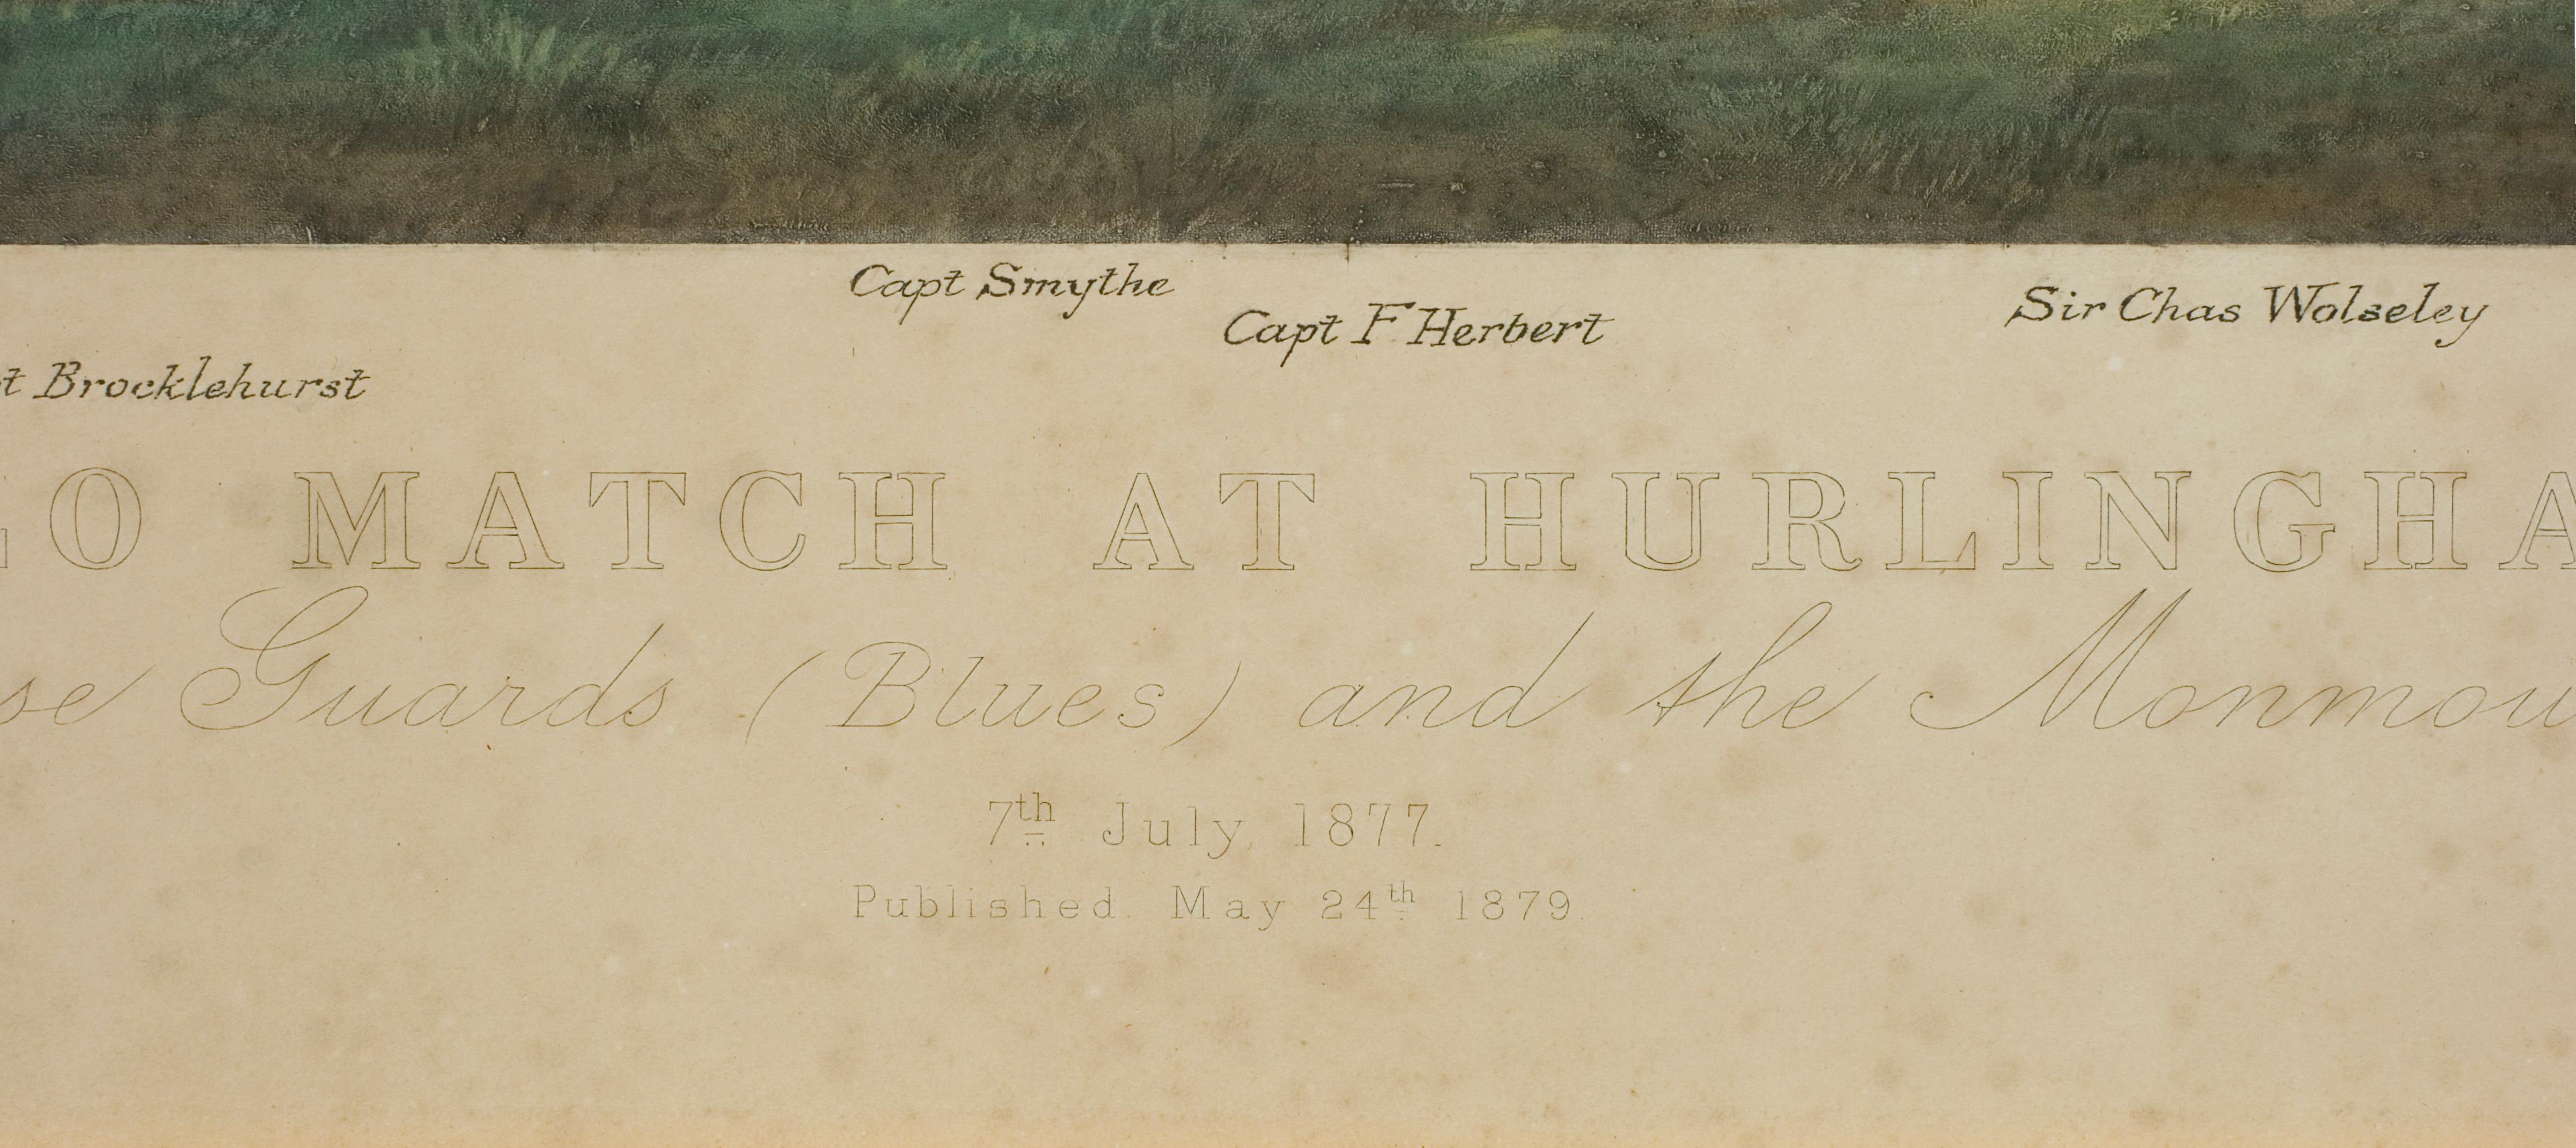 Capt Smythe
Capt F Herbert
Sir Chas Wolseley
t Brocklehurst
LO MATCH AT HURLINGHA
se Guards (Blues) and the Monmou
7th July, 1877.
Published. May 24th 1879.